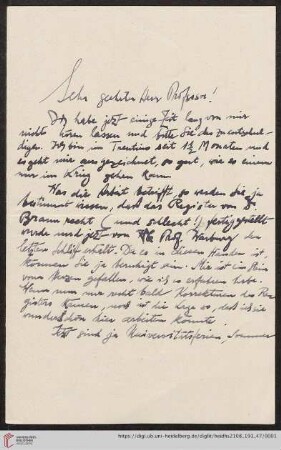 Sehr geehrter Herr Professor!
Ich habe jetzt einige Zeit lang von mir
nichts hören lassen und bitte Sie das zu entschul-
digen. Ich bin im Trentino seit 1½ Monaten und
es geht mir ausgezeichnet, so gut, wie es einem
nur im Krieg gehen kann.
Was die Arbeit betrifft, so werden Sie ja
bestimmt wissen, dass das Register von Dr.
Braun recht (und schlecht!) fertig gestellt
wurde und jetzt von Prof. Warburg den
letzten Schliff erhält. Da es in diesen Händen ist,
können Sie ja beruhigt sein. Mir ist ein Stein
vom Herzen gefallen, wie ich es erfahren habe.
Wenn nun nur recht bald Korrekturen des Re-
gisters kämen; noch ist die Lage so, dass ich sie
wunderschön hier arbeiten könnte.
Jetzt sind ja Universitätsferien, Sommer
https://digi.ub.uni-heidelberg.de/diglit/heidhs2108_191_47/0001